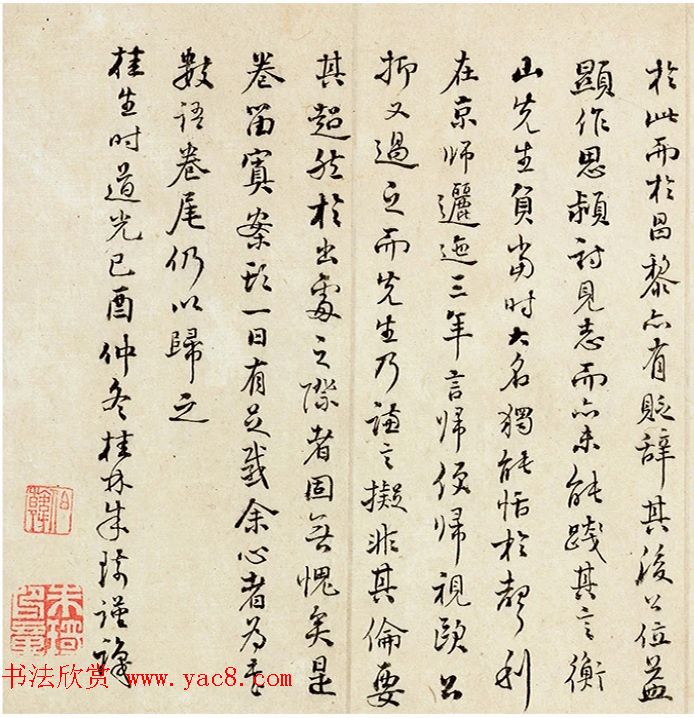 於此而於昌黎亦有貶辭其後公位益
顯作思潁詩見志而亦未能踐其言衡
山先生負當時大名獨能恬於聲利
在京師邐迤三年言歸便歸視歐公
抑又過之而先生乃謙言擬非其倫要
其超然於出處之際者固無愧矣是
卷留寘案頭一日有足感余心者為書
數語卷尾仍以歸之
桂生時道光己酉仲冬桂林朱琦謹識
伯韓
书法欣赏 www.yac8.com